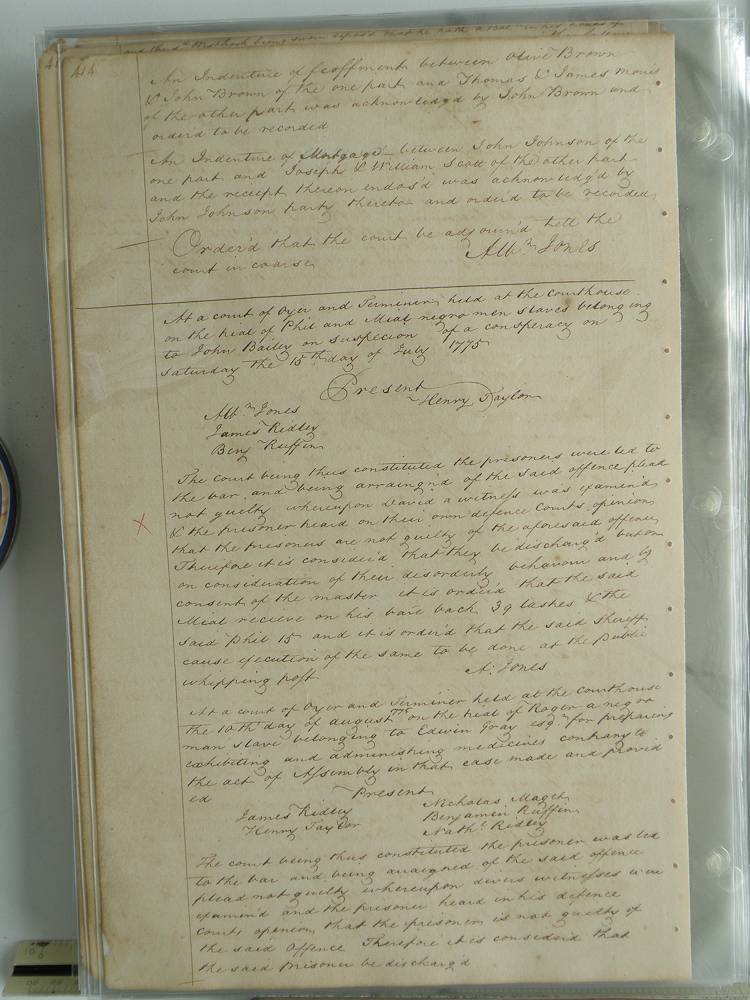 414
An Indenture of feoffment between Olive Brown
& John Brown of the one part and Thomas & James Morris
of the other part was acknowledg'd by John Brown and
order'd to be recorded
An Indenture of Mortgage between John Johnson of the
one part and Joseph & William Scott of the other part
and the receipt thereon endos'd was acknowledg'd by
John Johnson party thereto and order'd to be recorded
Order'd that the court be adjourn'd tell the
court in coarse Alb.n Jones
At a court of Oyer and Terminer held at the Courthouse
on the trial of Phil and Mial negro men slaves belonging
to John Bailey on suspecion of a conspiracy on
Saturday the 15th day of July 1775
Present
Alb.m Jones Henry Taylor
James Ridley
Benj.n Ruffin
The Court being thus constituted the prisoners were led to
the bar and being arraingn'd of the said offence plead
not guilty whereupon David a witness was examin'd
& the prisoner heard on their own defence Courts opinion
that the Prisoners are not guilty of the aforesaid offence
Therefore it is consider'd that they be discharg'd but on
on consideration of their disorderly behavour and by
consent of the master it is order'd that the said
Mial recieve on his bare back 39 lashes & the
said Phil 15 and it is order'd that the said Sheriff
cause execution of the same to be done at the public
whipping post A: Jones
At a court of Oyer and Terminer held at the Courthouse
the 10th day of August 775 on the trial of Roger a negro
man slave belonging to Edwin Gray esq.r for prepareing
exhibiting and administring medicines contrary to
the act of Assembly in that case made and provid
ed Present
James Ridley Nicholas Maget
Henry Taylor Benjamin Ruffin
Nath.l Ridley
The court being thus constituted the prisoner was led
to the bar and being araigned of the said offence
plead not guilty whereupon divers witnesses were
examin'd and the prisoner heard in his defence
courts openion that the prisoner is not guilty of
the said Offence Therefore it is consider'd that
the said Prisoner be discharg'd